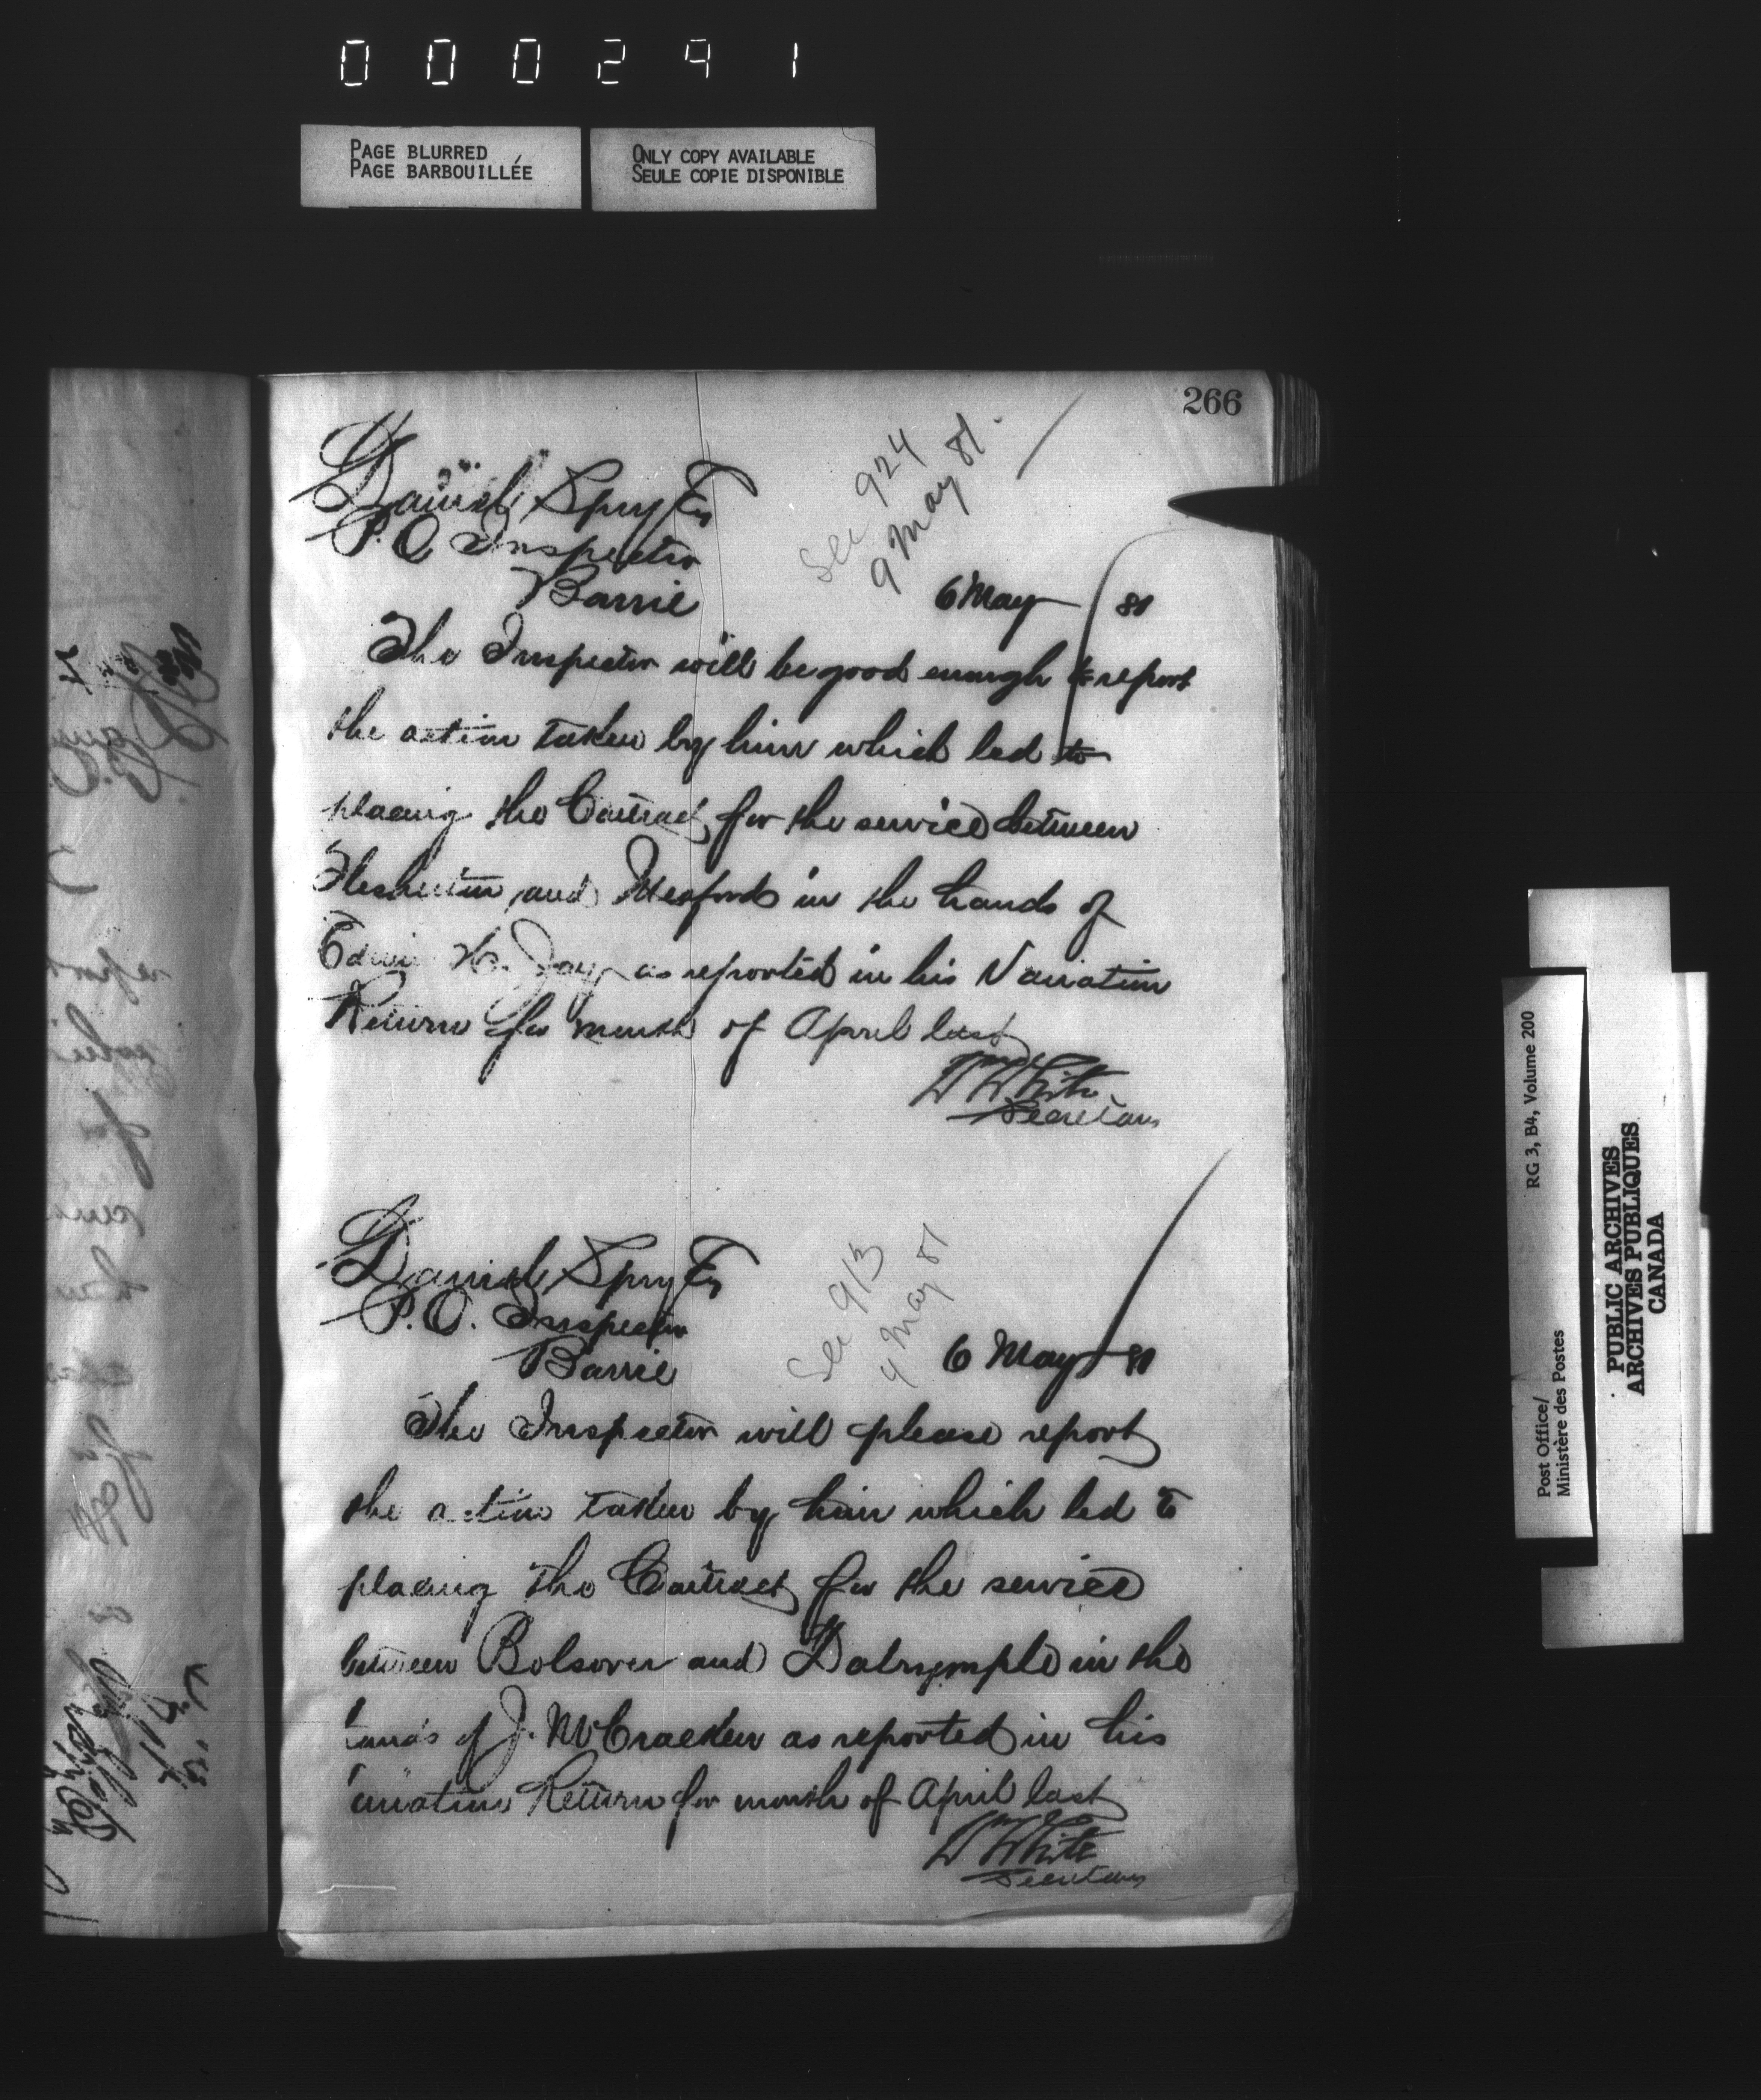 000291
PAGE BLURRED
PAGE BARBOUILLÉE
ONLY COPY AVAILABLE
SEULE COPIE DISPONIBLE
266
See 924
9 May 81.
Daniel Spry Esq
P.O. Inspector
Barrie
6 May 81
The Inspector will be good enough to report
the action taken by him which led to
placing the Contract for the service between
Flesherton and Meaford in the hands of
Edwin H. Jay as reported in his Variation
Return for month of April last
W White
Secretary
Daniel Spry Esq
P.O. Inspector
Barrie
See 913
4 May 81
6 May 81
The Inspector will please report
the action taken by him which led to
placing the Contract for the service
between Bolsover and Dalrymple in the
hands of J. McCracken as reported in his
Variation Return for month of April last
W White
Secretary
RG 3, B4, Volume 200
Post Office/
Ministère des Postes
PUBLIC ARCHIVES
ARCHIVES PUBLIQUES
CANADA